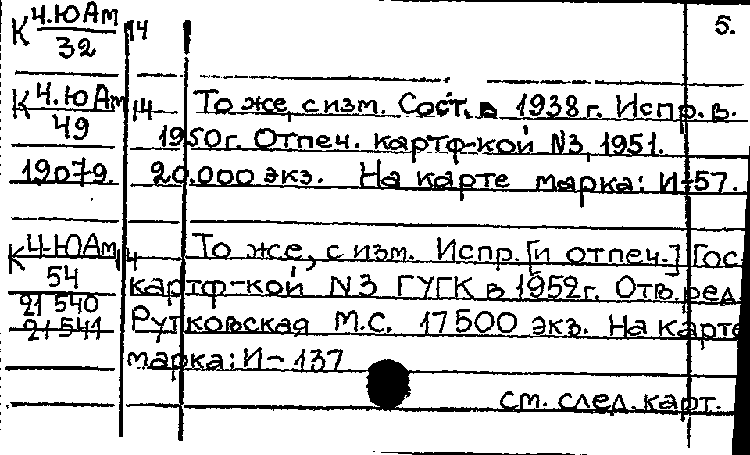 К 4.ЮАм/32 14 5.
К 4.ЮАм/49 14 То же, с изм. Сост. в 1938 г. Испр. в
1950г. Отпеч. картф-кой №3, 1951.
19079. 20.000 экз. На карте марка: И-57.
К 4-ЮАм/54 14 То же, с изм. Испр. [и отпеч.] Гос.
картф-кой №3 ГУГК в 1952г. Отв. ред.
21 540
21 541 Рутковская М.С. 17500 экз. На карте
марка: И-137
см. след. карт.